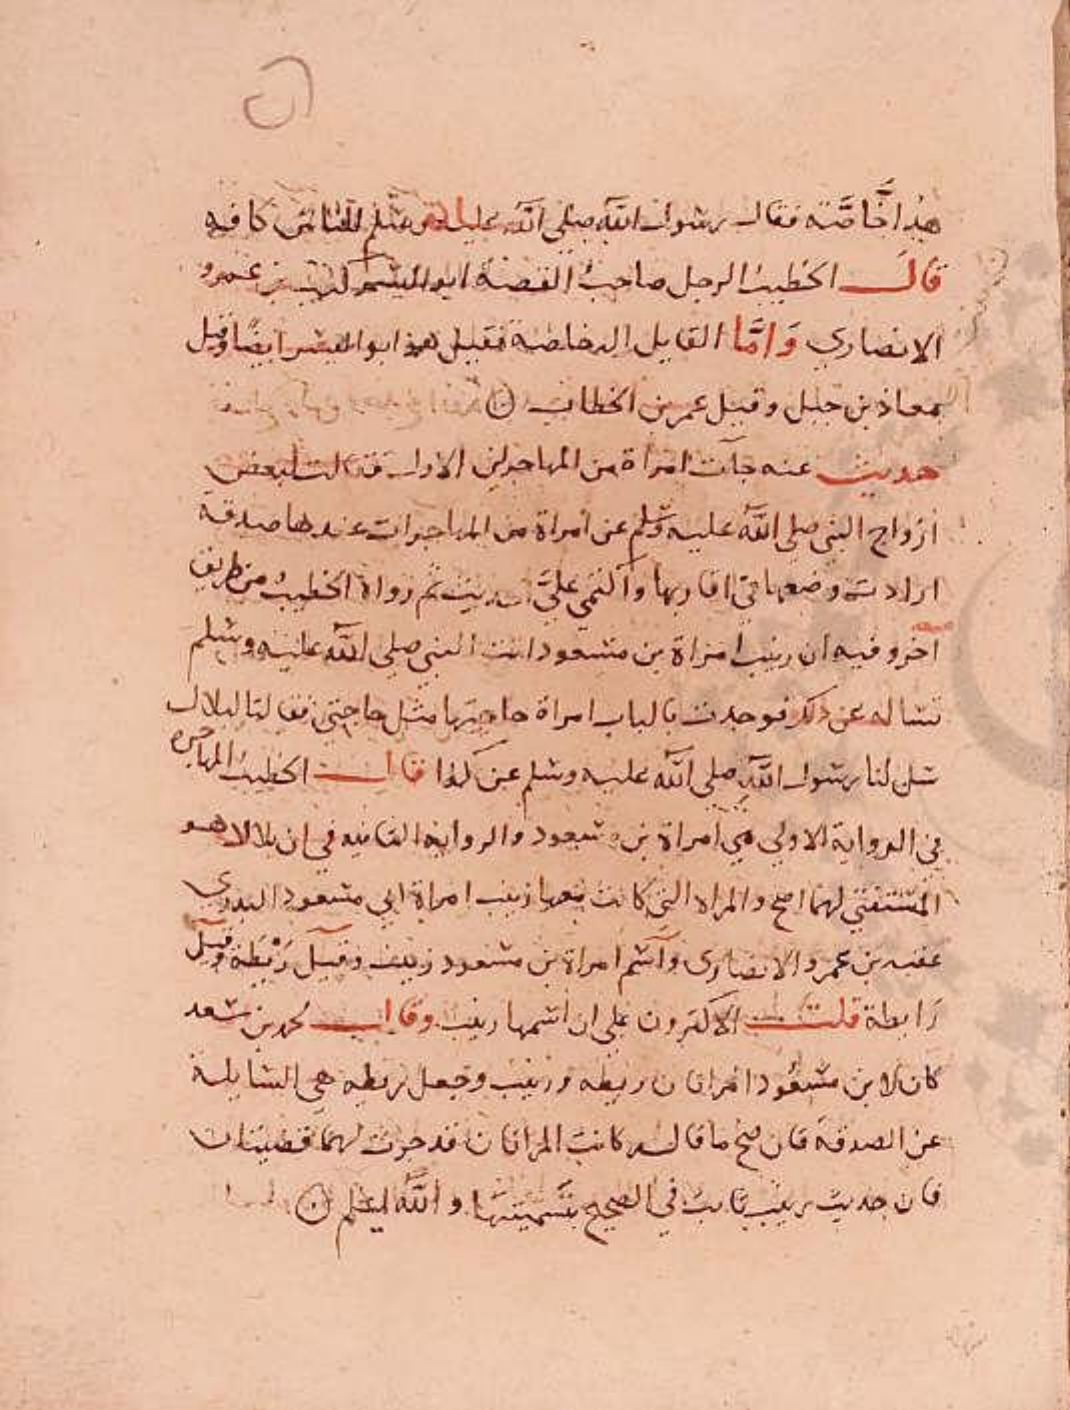 هذا خاصة فقال رسول الله صلى الله عليه وسلم للناس كافة
قال الخطيب الرجل صاحب القصة ابو اليسر كعب بن عمرو
الانصاري واما القايل اله خاصة فقيل هو ابو اليسر ايضا وقيل
معاذ بن جبل وقيل عمر بن الخطاب
حديث عنه جآت امراة من المهاجرين الاول فقالت لبعض
ازواج النبي صلى الله عليه وسلم عن امراة من المهاجرات عندها صدقة
ارادت وضعها في اقاربها والنبي علي الحديث ثم رواه الخطيب من طريق
اخر وفيه ان زينب امراة بن مسعود اتت النبي صلى الله عليه وسلم
تساله عن ذلك فوجدت بالباب امراة حاجتها مثل حاجتي فقالتا لبلال
سل لنا رسول الله صلى الله عليه وسلم عن كذا قال الخطيب المهاجرة
في الرواية الاولى هي امراة بن مسعود والرواية الثانيه في ان بلالا هو
المستفتي لهما اصح والمراة التي كانت معها زينب امراة ابي مسعود البدري
عقبه بن عمرو الانصاري واسم امراة بن مسعود زينب وقيل ريطة وقيل
رابطة قلت الاكثرون على ان اسمها زينب وقال محمد بن سعد
كان لابن مسعود امراتان ريطه وزينب وجعل ريطه هي السايلة
عن الصدقة فان صح ما قاله كانت المراتان قد جرت لهما قضيتان
فان حديث زينب ثابت في الصحيح بتسميتها والله اعلم